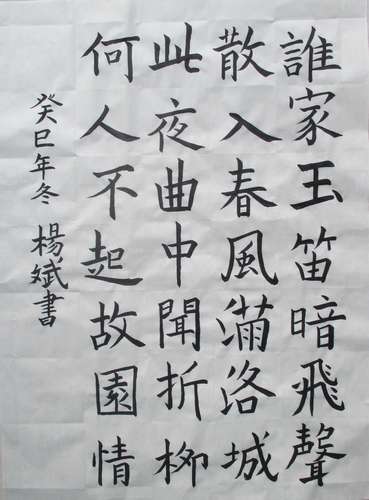 誰家玉笛暗飛聲
散入春風滿洛城
此夜曲中聞折柳
何人不起故園情
癸巳年冬 楊斌書